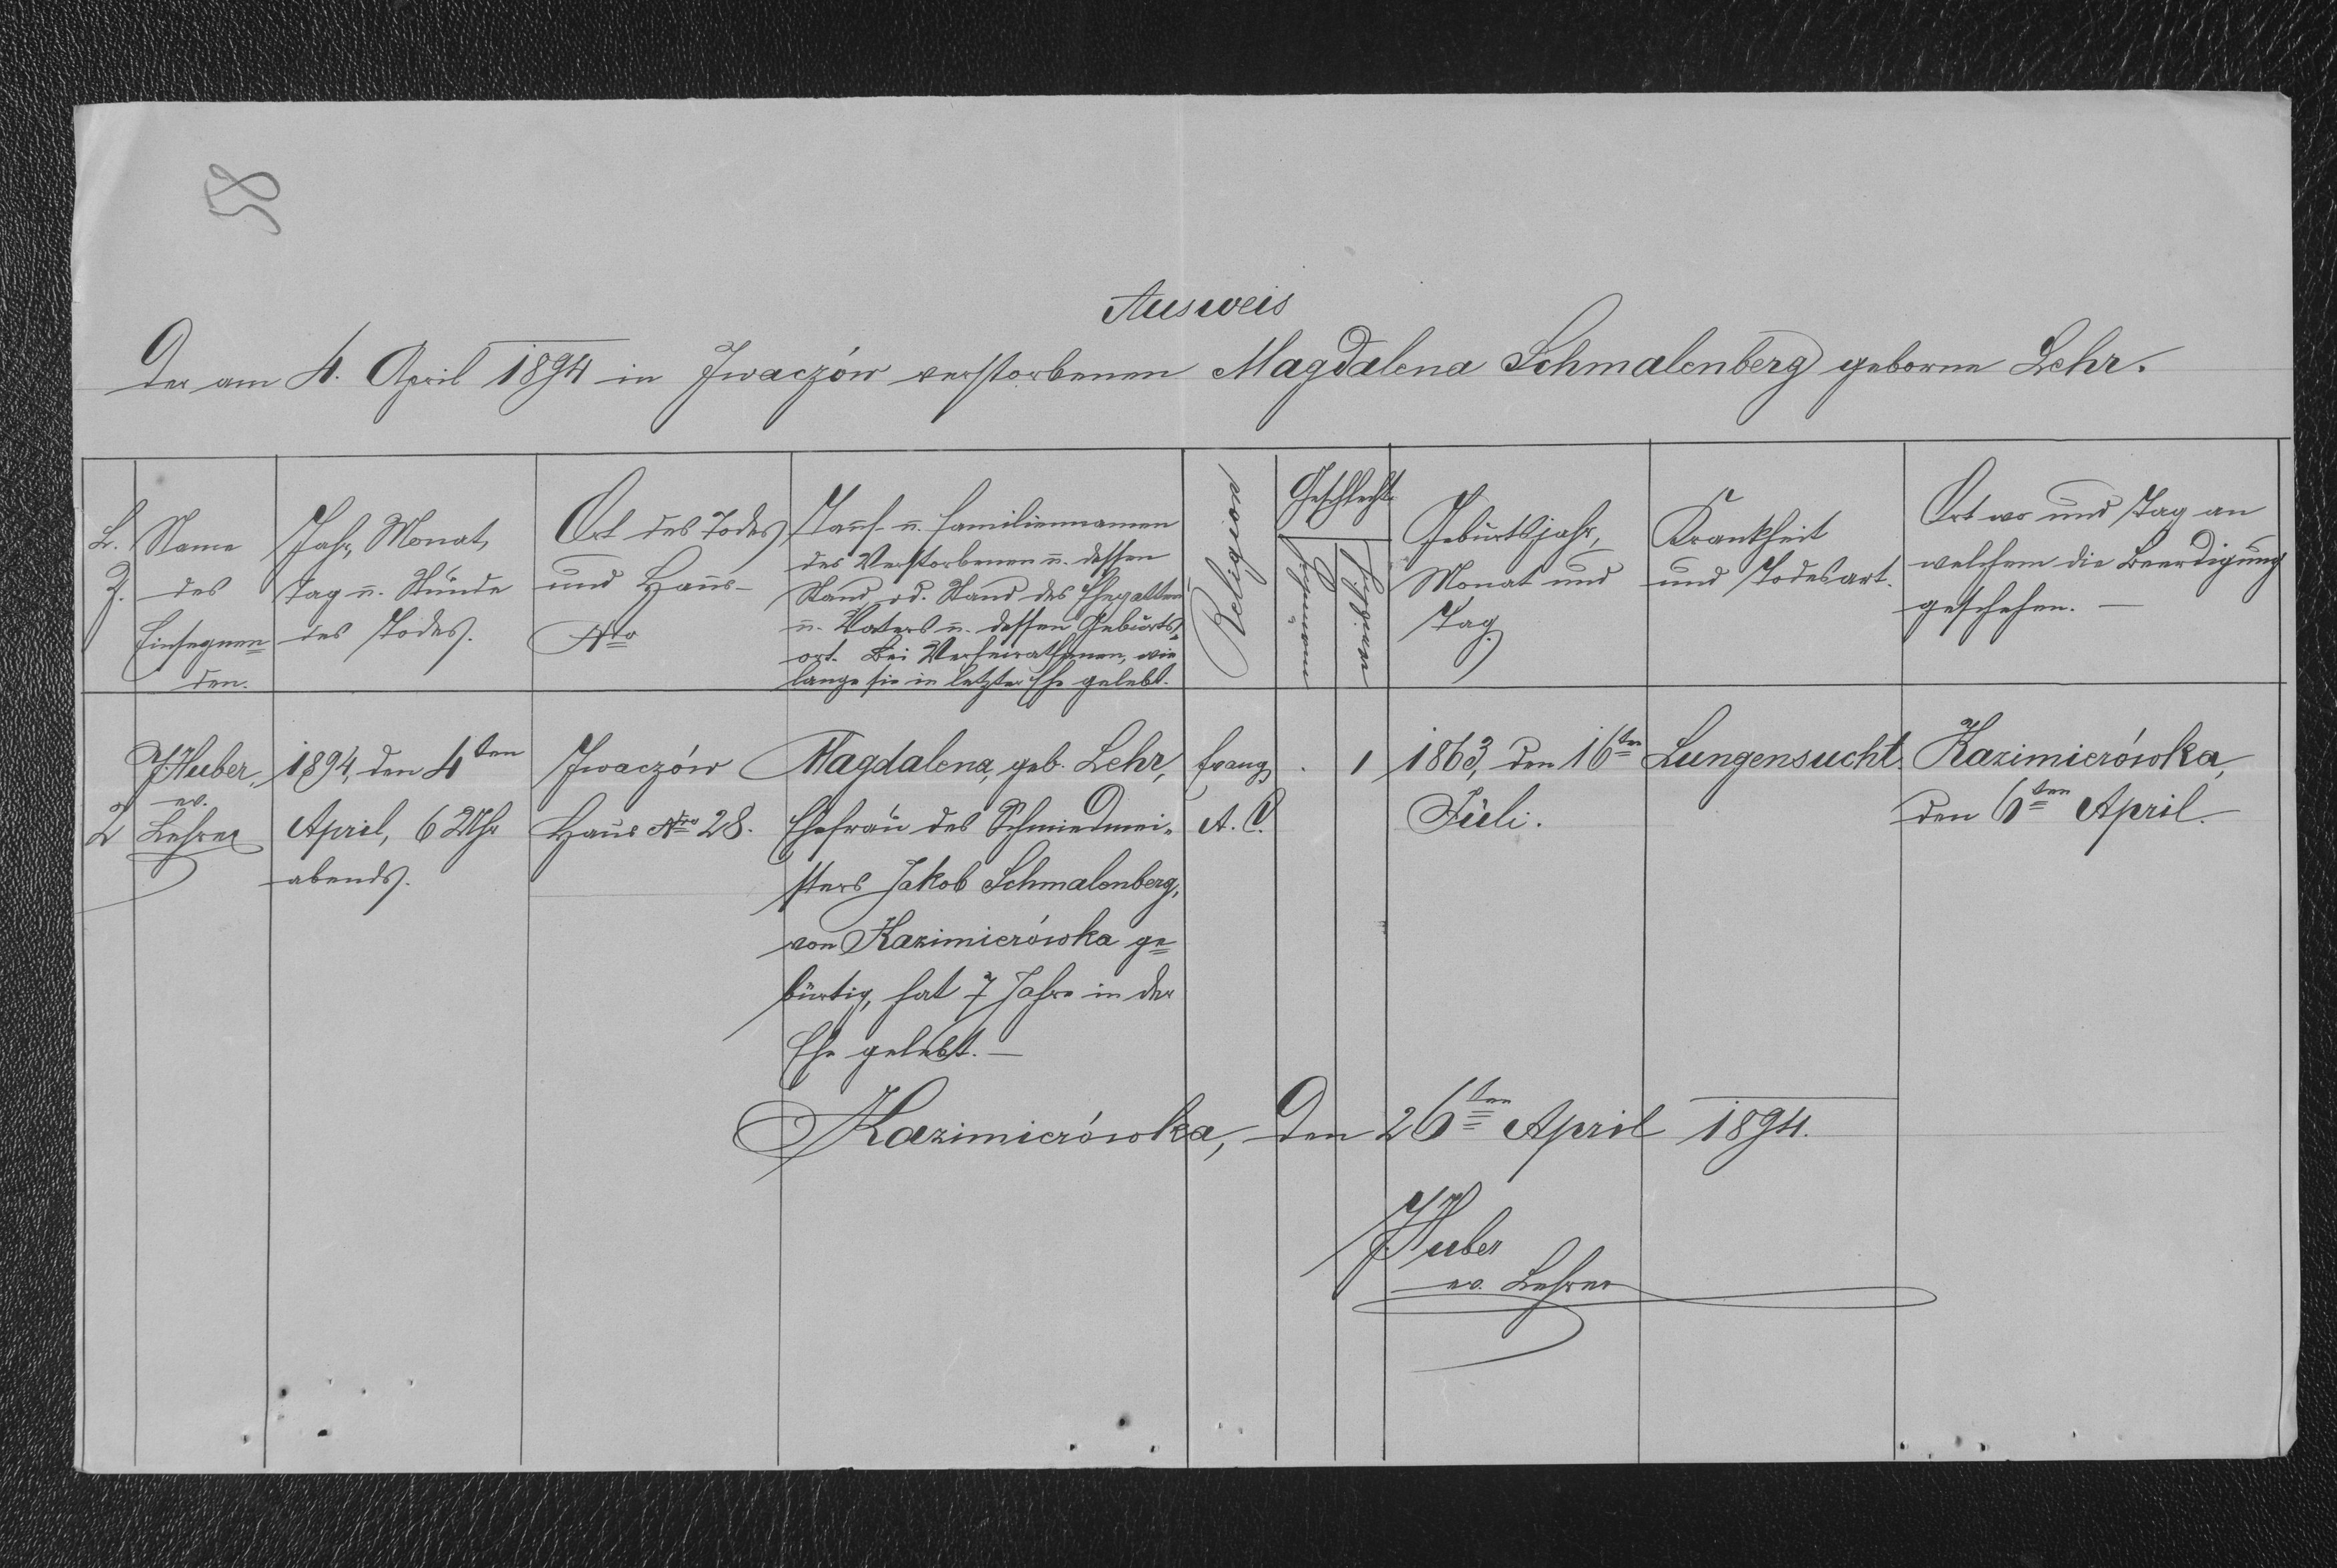 58
Ausweis
Der am 4. April 1894 in Iwaczów verstorbenen Magdalena Schmalenberg geborne Lehr.
L.
Z.
Name
des
Einsegnen=
den.
Jahr, Monat,
Tag u. Stunde
des Todes.
Ort des Todes
und Haus-
Nro
Tauf- u. Familiennamen
des Verstorbenen u. dessen
Stand, od. Stand des Ehegatten
u. Vaters u. dessen Geburts=
ort. Bei Verheiratheten, wie
lange sie in letzter Ehe gelebt.
Religion
Geschlecht
männlich
weiblich
Geburtsjahr,
Monat und
Tag
Krankheit
und Todesart.
Ort wo und Tag an
welchem die Beerdigung
geschehen. —
2
J. Huber,
ev.
Lehrer
1894, den 4ten
April, 6 Uhr
abends.
Iwaczów
Haus Nro 28.
Magdalena, geb. Lehr,
Ehefrau des Schmiedmei=
sters Jakob Schmalenberg,
von Kazimierówka ge=
bürtig, hat 7 Jahre in der
Ehe gelebt. —
Evang.
A. C.
.
1
1863, den 16ten
Juli.
Lungensucht.
Kazimierówka,
den 6ten April.
Kazimierówka, den 26ten April 1894.
J. Huber
ev. Lehrer